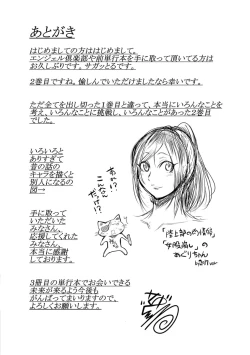 あとがき
はじめましての方ははじめまして。
エンジェル倶楽部や前単行本を手に取って頂いてる方は
お久しぶりです。サガッとるです。
2巻目ですね。愉しんでいただけましたなら幸いです。
ただ全てを出し切った1巻目と違って、本当にいろんなことを
考え、いろんなことに挑戦し、いろんなことがあった2巻目
でした。
いろいろと
ありすぎて
昔の話の
キャラを描くと
別人になるの
図→
こんな
だっけ!?
「陸上部の
の
めぐりちゃん
手に取って
いただいた
みなさん、
応援してくれた
みなさん。
本当に感謝
しております。
3冊目の単行本でお会いできる
未来が来るよう今後も
がんばってまいりますので、
よろしくお願いします。